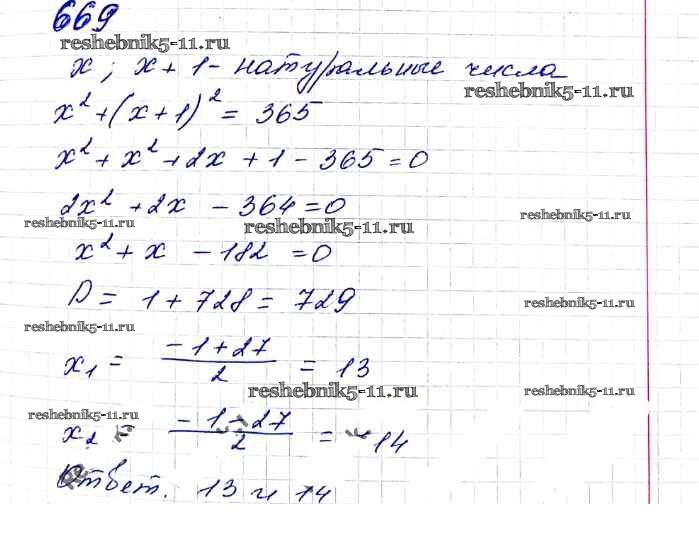 669
reshebnik5-11.ru
x ; x + 1 - натуральные числа
reshebnik5-11.ru
x² + (x + 1)² = 365
x² + x² + 2x + 1 - 365 = 0
2x² + 2x - 364 = 0
reshebnik5-11.ru
reshebnik5-11.ru
reshebnik5-11.ru
x² + x - 182 = 0
D = 1 + 728 = 729
reshebnik5-11.ru
reshebnik5-11.ru
x₁ = (-1 + 27)/2 = 13
reshebnik5-11.ru
reshebnik5-11.ru
reshebnik5-11.ru
x₂ = (-1 - 27)/2 = -14
Ответ. 13 и 14